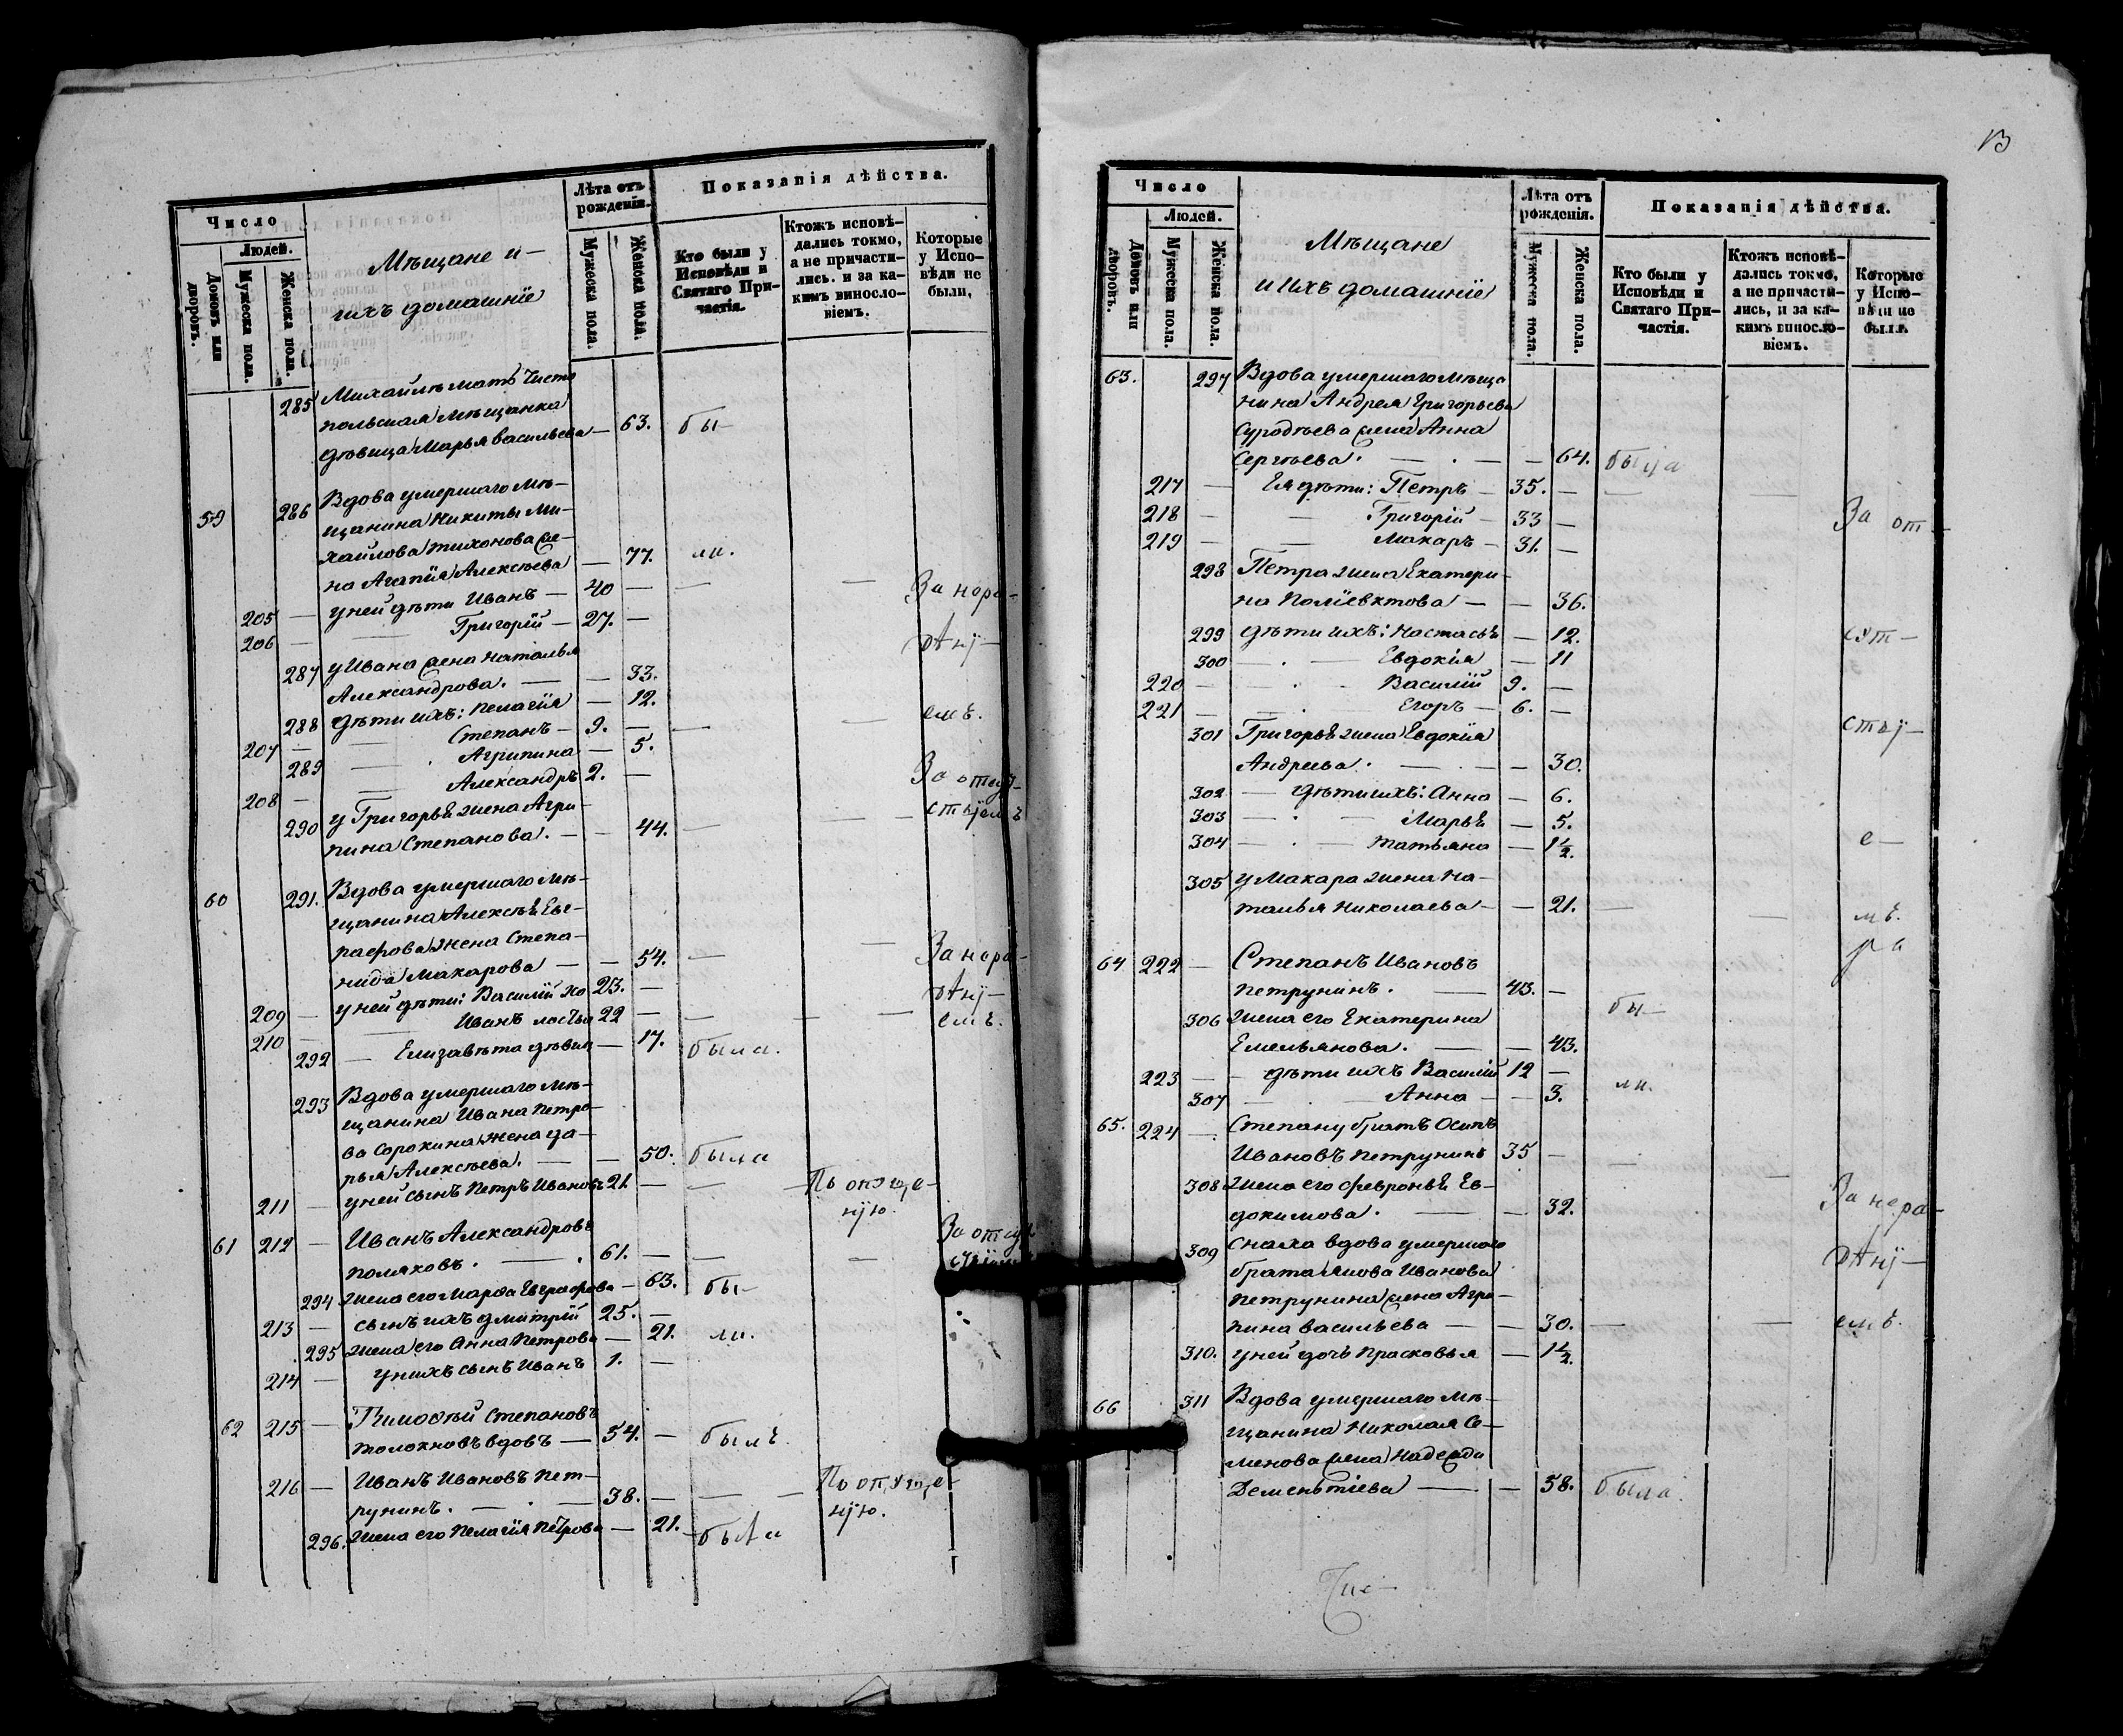 Число
Людей.
Домовъ или дворовъ.
Мужеска пола.
Женска пола.
Мѣщане и
ихъ домашніе
Лѣта отъ
рожденія.
Мужеска пола.
Женска пола.
Показанія дѣйства.
Кто были у
Исповѣди и
Святаго При-
частія.
Ктожъ исповѣ-
дались токмо,
а не причасти-
лись, и за ка-
кимъ виносло-
віемъ.
Которые
у Испо-
вѣди не
были.
285 Михайлѣ мать Чисто
польская мѣщанка
дѣвица Марья Васильева — 63. бы-
59 286 Вдова умершаго мѣ-
щанина Никиты Ми-
хайлова Тихонова же-
на Агапія Алексѣева — 77. ли.
205 — у ней дѣти Иванъ — 40 — За нера-
206 — Григорій — 27. —
287 у Ивана жена Наталья
Александрова. — — 33.
288 дѣти ихъ: Пелагія — 12.
207 — Степанъ — 9. — емъ.
289 — Агрипина — 5.
208 — Александръ 2. — За отсу-
290 у Григорья жена Агри-
пина Степанова. — — 44. — ствіемъ
60 291. Вдова умершаго мѣ-
щанина Алексѣя Ев-
графова жена Степа-
нида Макарова — — 54. — За нера-
209 — у ней дѣти: Василій хо 23. —
210 — Иванъ лостья 22 — емъ.
292 — Елизавета дѣвиц — 17. была.
293 Вдова умершаго мѣ-
щанина Ивана Петро-
ва Сорокина жена Да-
рья Алексѣева. — — 50. была
211 — у ней сынъ Петръ Ивановъ 21 — По опуще-
нію.
61 212 — Иванъ Александровъ
Поляковъ. — 61. — За отсу-
ствіемъ
294 жена его Марфа Евграфова — 63. бы-
213 — сынъ ихъ Дмитрій 25. —
295 жена его Анна Петрова — 21. ли.
214 — у нихъ сынъ Иванъ 1. —
62 215 — Тимофѣй Степановъ
Толокновъ вдовъ — 54. — былъ.
216 — Иванъ Ивановъ Пет-
рунинъ. — 38. — По опуще-
нію.
296. жена его Пелагія Петрова — 21. была
13
Число
Людей.
Домовъ или дворовъ.
Мужеска пола.
Женска пола.
Мѣщане
и ихъ домашніе
Лѣта отъ
рожденія.
Мужеска пола.
Женска пола.
Показанія дѣйства.
Кто были у
Исповѣди и
Святаго При-
частія.
Ктожъ исповѣ-
дались токмо,
а не причасти-
лись, и за ка-
кимъ виносло-
віемъ.
Которые
у Испо-
вѣди не
были.
63. 297 Вдова умершаго мѣща
нина Андрея Григорьева
Суродѣева жена Анна
Сергѣева. — — 64. была
217 — Ея дѣти: Петръ — 35. —
218 — Григорій — 33 — За от-
219 — Макаръ — 31. —
298 Петра жена Екатери-
на Поліевктова — — 36.
299 дѣти ихъ: Настасья — 12. сут-
300 — Евдокія — 11
220 — Василій 9. —
221 — Егоръ — 6. —
301 Григорья жена Евдокія ствѣ-
Андреева. — — 30.
302 — дѣти ихъ: Анна — 6.
303 — Марья — 5.
304 — Татьяна — 1½. е-
305 у Макара жена На-
талья Николаева — — 21. — мъ.
64 222 — Степанъ Ивановъ
Петрунинъ. — 43. —
306 жена его Екатерина бы-
Емельянова. — — 43.
223 — дѣти ихъ Василій 12 —
307 — Анна — — 3. ли.
65. 224 — Степану братъ Осипъ
Ивановъ Петрунинъ 35 —
308 жена его Февронья Ев-
докимова. — — 32. За нера-
309 Сноха вдова умершаго
брата Якова Иванова
Петрунина жена Агри-
пина Васильева — — 30. — емъ.
310. у ней дочь Прасковья — 1½.
66 311 Вдова умершаго мѣ-
щанина Николая Се-
менова жена Надежда
Дементіева — — 58. была.